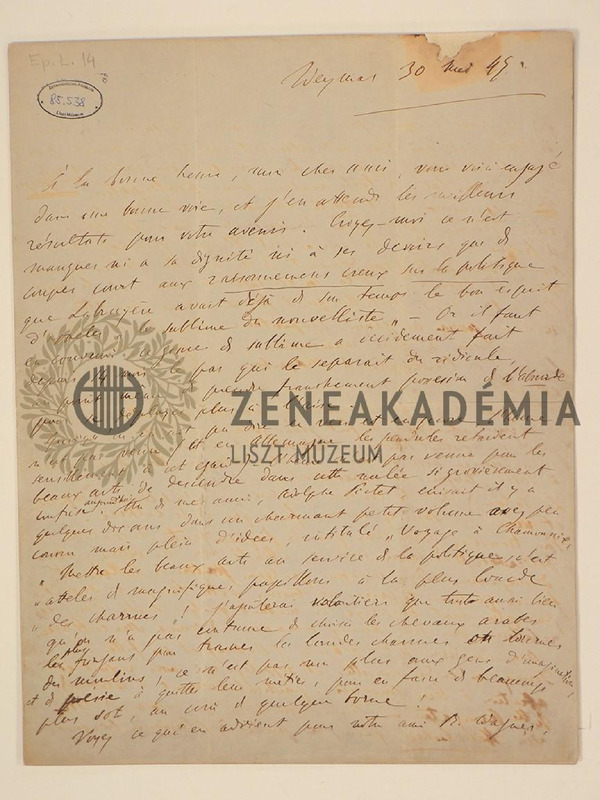 Ep. L. 14
85.538
LISZT MÚZEUM
Weymar 30 Mai 49.
A la bonne heure, mon cher ami, vous voici engagé
dans une bonne voie, et j'en attends les meilleurs
résultats pour votre avenir. Croyez-moi ce n'est
manquer ni à sa dignité ni à ses devoirs que de
couper court aux raisonnements creux sur la politique
que Labruyère avait déjà de son temps le bon esprit
d'appeler "le sublime du nouvelliste" — Or il faut
en convenir ce genre de sublime a décidement fait
depuis ans le pas qui le separait du ridicule,
et prendre franchement possession de l'absurde
pour se plus à l'aise.
n'est pas venu (et en Allemagne les pendules retardent
sensiblement à cet égard) pas venue pour les
beaux arts de descendre dans cette mêlée si grossièrement
confuse. Un de mes amis, Adolphe Pictet, écrivait il y a
quelques dix ans dans un charmant petit volume assez peu
connu mais plein d'idées, intitulé "Voyage à Chamounix,
"Mettre les beaux arts au service de la politique c'est
"atteler de magnifiques papillons à la plus lourde
"des charrues! J'ajouterai volontiers que tout aussi bien
qu'on n'a pas coutume de choisir les chevaux arabes
les plus fringans pour trainer les lourdes charrues ou tourner
des moulins; ce n'est pas non plus aux gens d'imagination
et de poësie à quitter leur métier, pour en faire de beaucoup
plus sot, au coin de quelque borne!
Voyez ce qu'il en advient pour notre ami R. Wagner,
ZENEAKADÉMIA
LISZT MÚZEUM